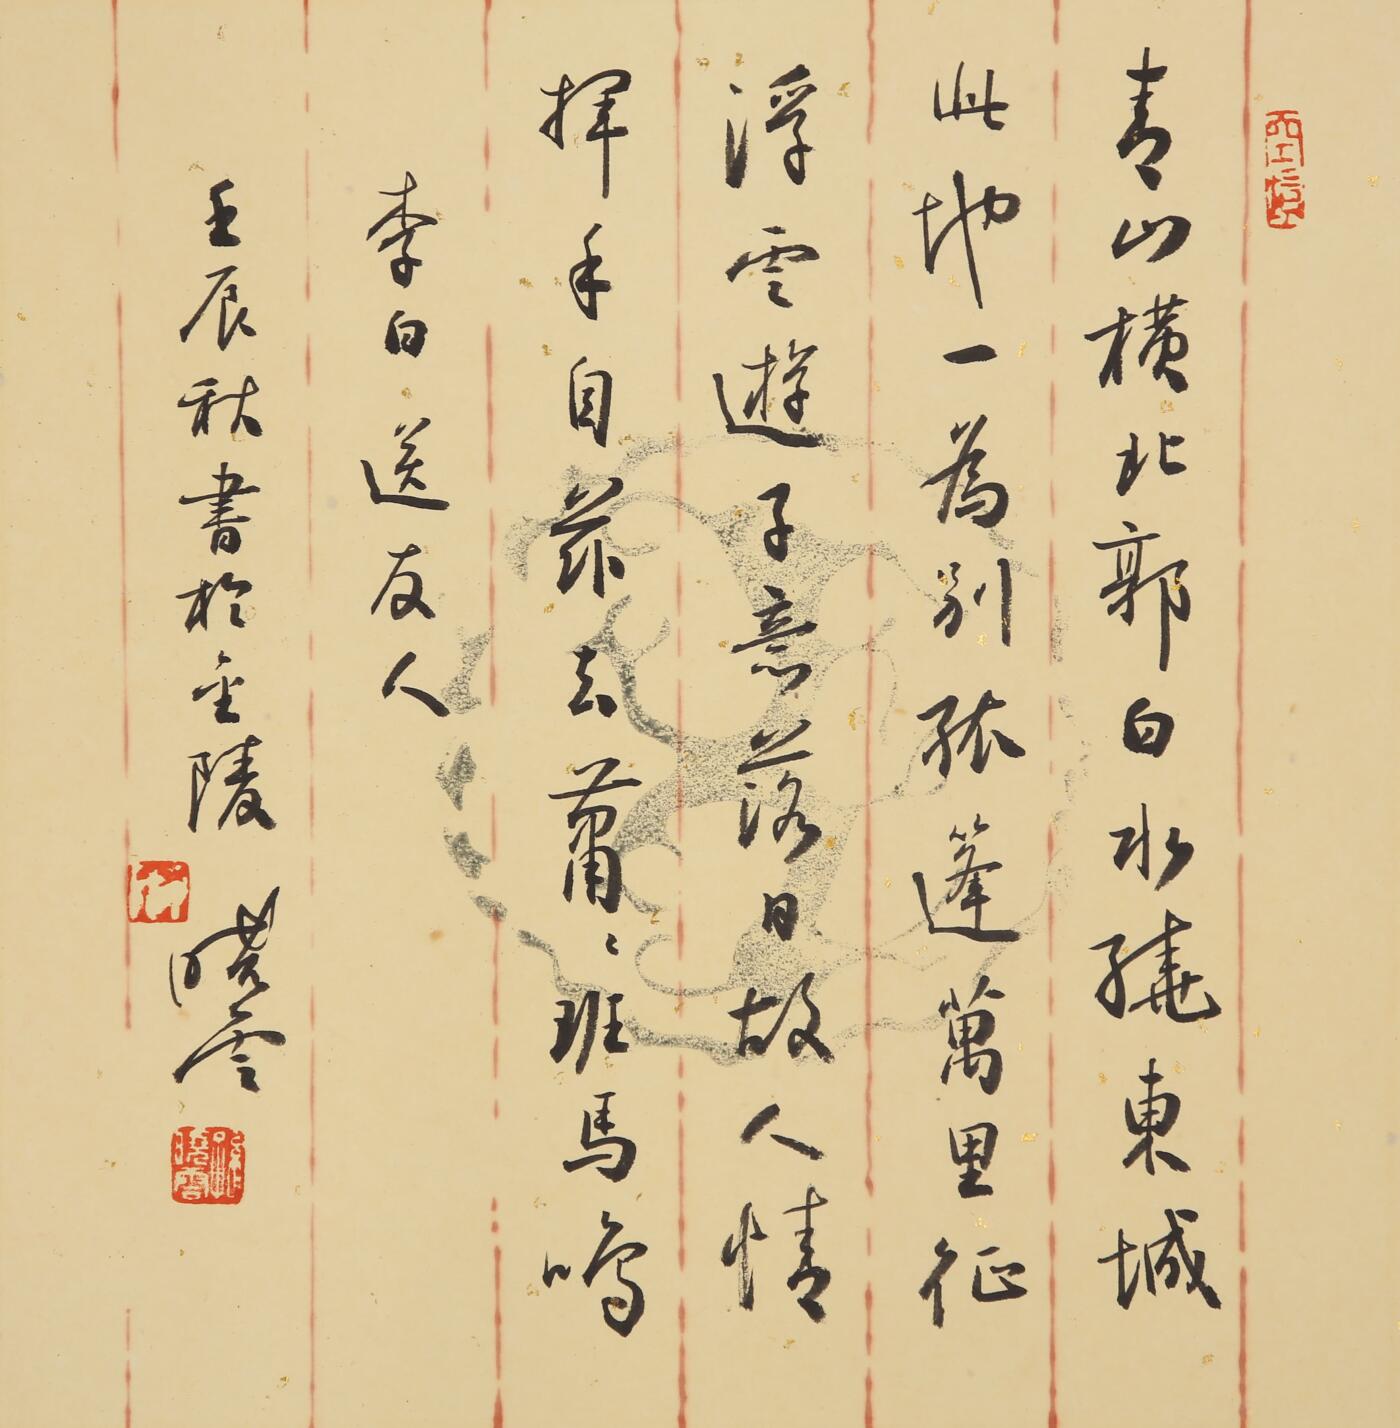 青山橫北郭白水繞東城
此地一為別孤篷萬里征
浮雲遊子意落日故人情
揮手自茲去蕭〻班馬鳴
李白送友人
壬辰秋書於金陵 曉雲